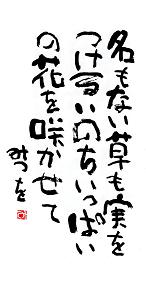 名もない草も実を
つけるいのちいっぱい
の花を咲かせて
みつを